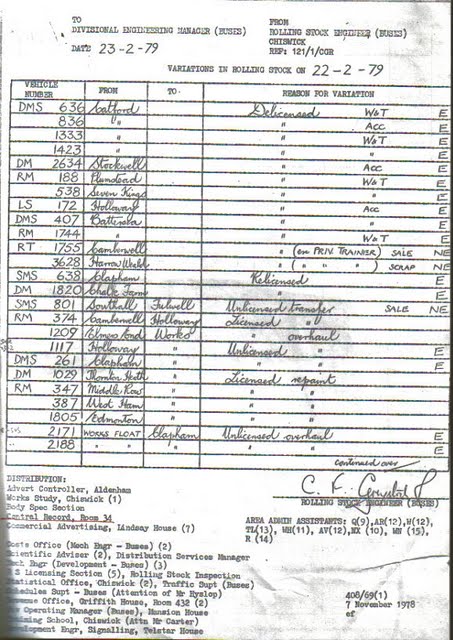 TO
DIVISIONAL ENGINEERING MANAGER (BUSES)
DATE 23-2-79
FROM
ROLLING STOCK ENGINEER (BUSES)
CHISWICK
REF: 121/1/CGR
VARIATIONS IN ROLLING STOCK ON 22-2-79
VEHICLE NUMBER FROM TO REASON FOR VARIATION
DMS 636 Catford Delicensed W&T E
836 " " Acc E
1333 " " W&T E
1423 " " " E
DM 2634 Stockwell " Acc E
RM 188 Plumstead " W&T E
538 Seven Kings " " E
LS 172 Holloway " Acc E
DMS 407 Battersea " " E
RM 1744 " " W&T E
RT 1755 Camberwell " (on PRIV. TRAINER) SALE NE
3628 Harrow Weald " ( " " " ) SCRAP NE
SMS 638 Clapham Relicensed E
DM 1820 Chalk Farm " E
SMS 801 Southall Fulwell Unlicensed transfer SALE NE
RM 374 Camberwell Holloway Licensed "
1209 Elmers End Works " overhaul
1117 Holloway " Unlicensed " E
DMS 261 Clapham " " " E
DM 1029 Thornton Heath " Licensed repaint
RM 347 Middle Row " " "
387 West Ham " " "
1805 Edmonton " " "
2171 WORKS FLOAT Clapham Unlicensed overhaul E
2188 " " " " " E
continued over
DISTRIBUTION:
Advert Controller, Aldenham
Works Study, Chiswick (1)
Body Spec Section
Central Record, Room 34
Commercial Advertising, Lindsey House (7)
ROLLING STOCK ENGINEER (BUSES)
AREA ADMIN ASSISTANTS: Q(9), AR(12), W(12),
TL(13), WH(11), AV(12), MX (10), WN (15),
R (14)
Costs Office (Mech Engr - Buses) (2)
Scientific Adviser (2), Distribution Services Manager
Mech Engr (Development - Buses) (3)
S Licensing Section (5), Rolling Stock Inspection
Statistical Office, Chiswick (2), Traffic Supt (Buses)
Schedules Supt - Buses (Attention of Mr Hyslop)
Office, Griffith House, Room 432 (2)
Operating Manager (Buses), Mansion House
Training School, Chiswick (Attn Mr Carter)
Development Engr, Signalling, Telstar House
408/69(1)
7 November 1978
of